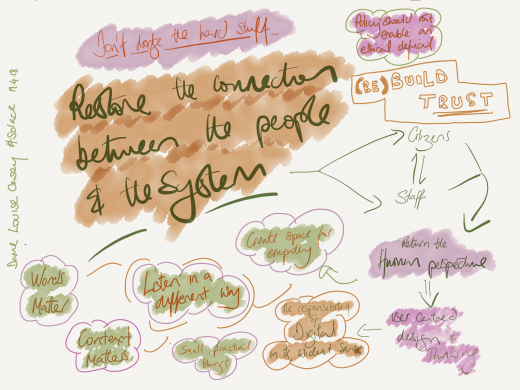 Don't dodge the hard stuff...
Policy should not
enable an
ethical deficit
Restore the connection
between the people
& the System
(RE) BUILD
TRUST
Citizens
Staff
Dame Louise Casey #Solace 19.4.18
Return the
Human perspective
User Centred
design &
Thinking
Create space for
empathy
Listen in a
different way
Words
Matter
Context
Matters
Small practical
things
The responsibility
Digital
in its widest sense